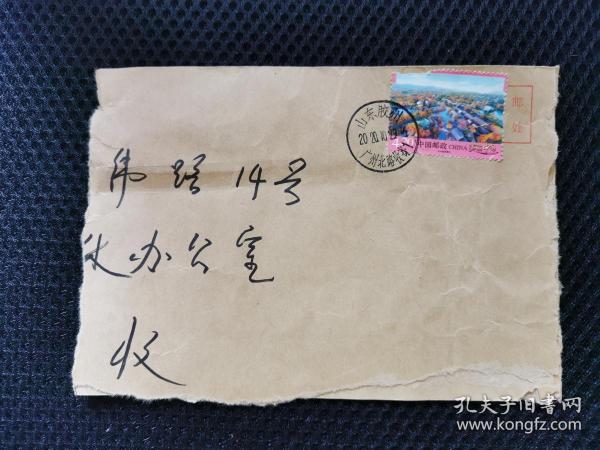 山东胶州
2020.10.
广州北路
中国邮政 CHINA
邮
处
纬路14号
办公室
收
孔夫子旧书网
www.kongfz.com